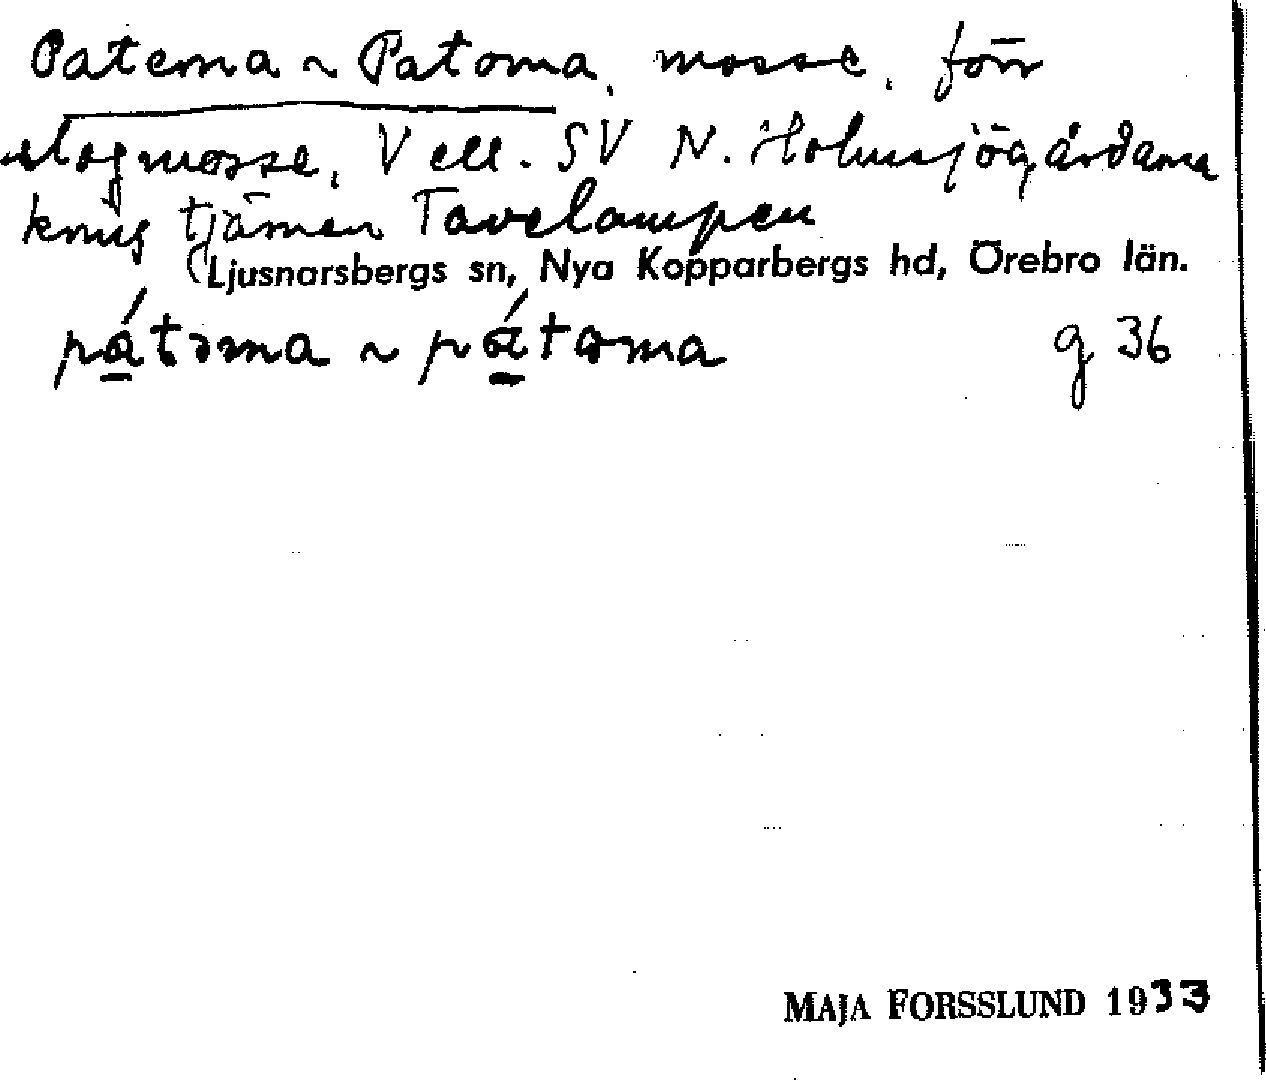 Patema ~ Patoma, mosse, förr
slogmosse, V ell. SV N. Holmsjögårdarna
kring tjärnen Tavelampen
(Ljusnarsbergs sn, Nya Kopparbergs hd, Örebro län.
pátəma ~ pátoma g 36
MAJA FORSSLUND 1933